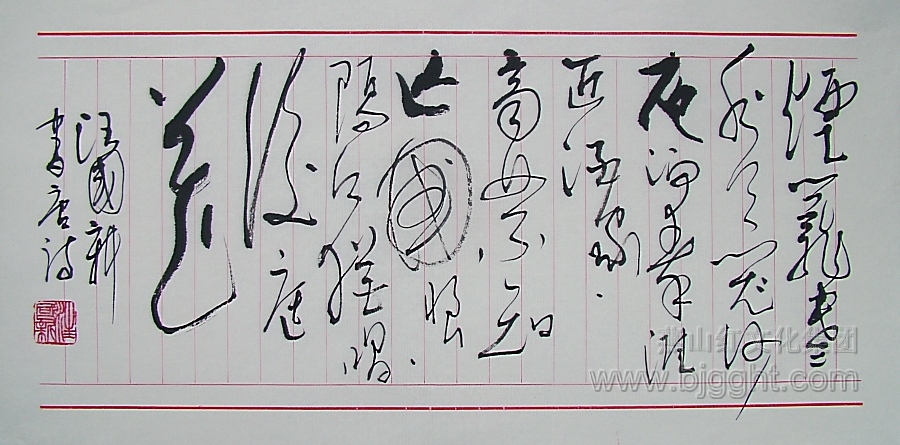 煙籠寒
水月籠沙
夜泊秦淮
近酒家
商女不知
亡國恨
隔江猶唱
後庭
花
汪國新
書唐詩
山红文化集团
www.bjgght.com